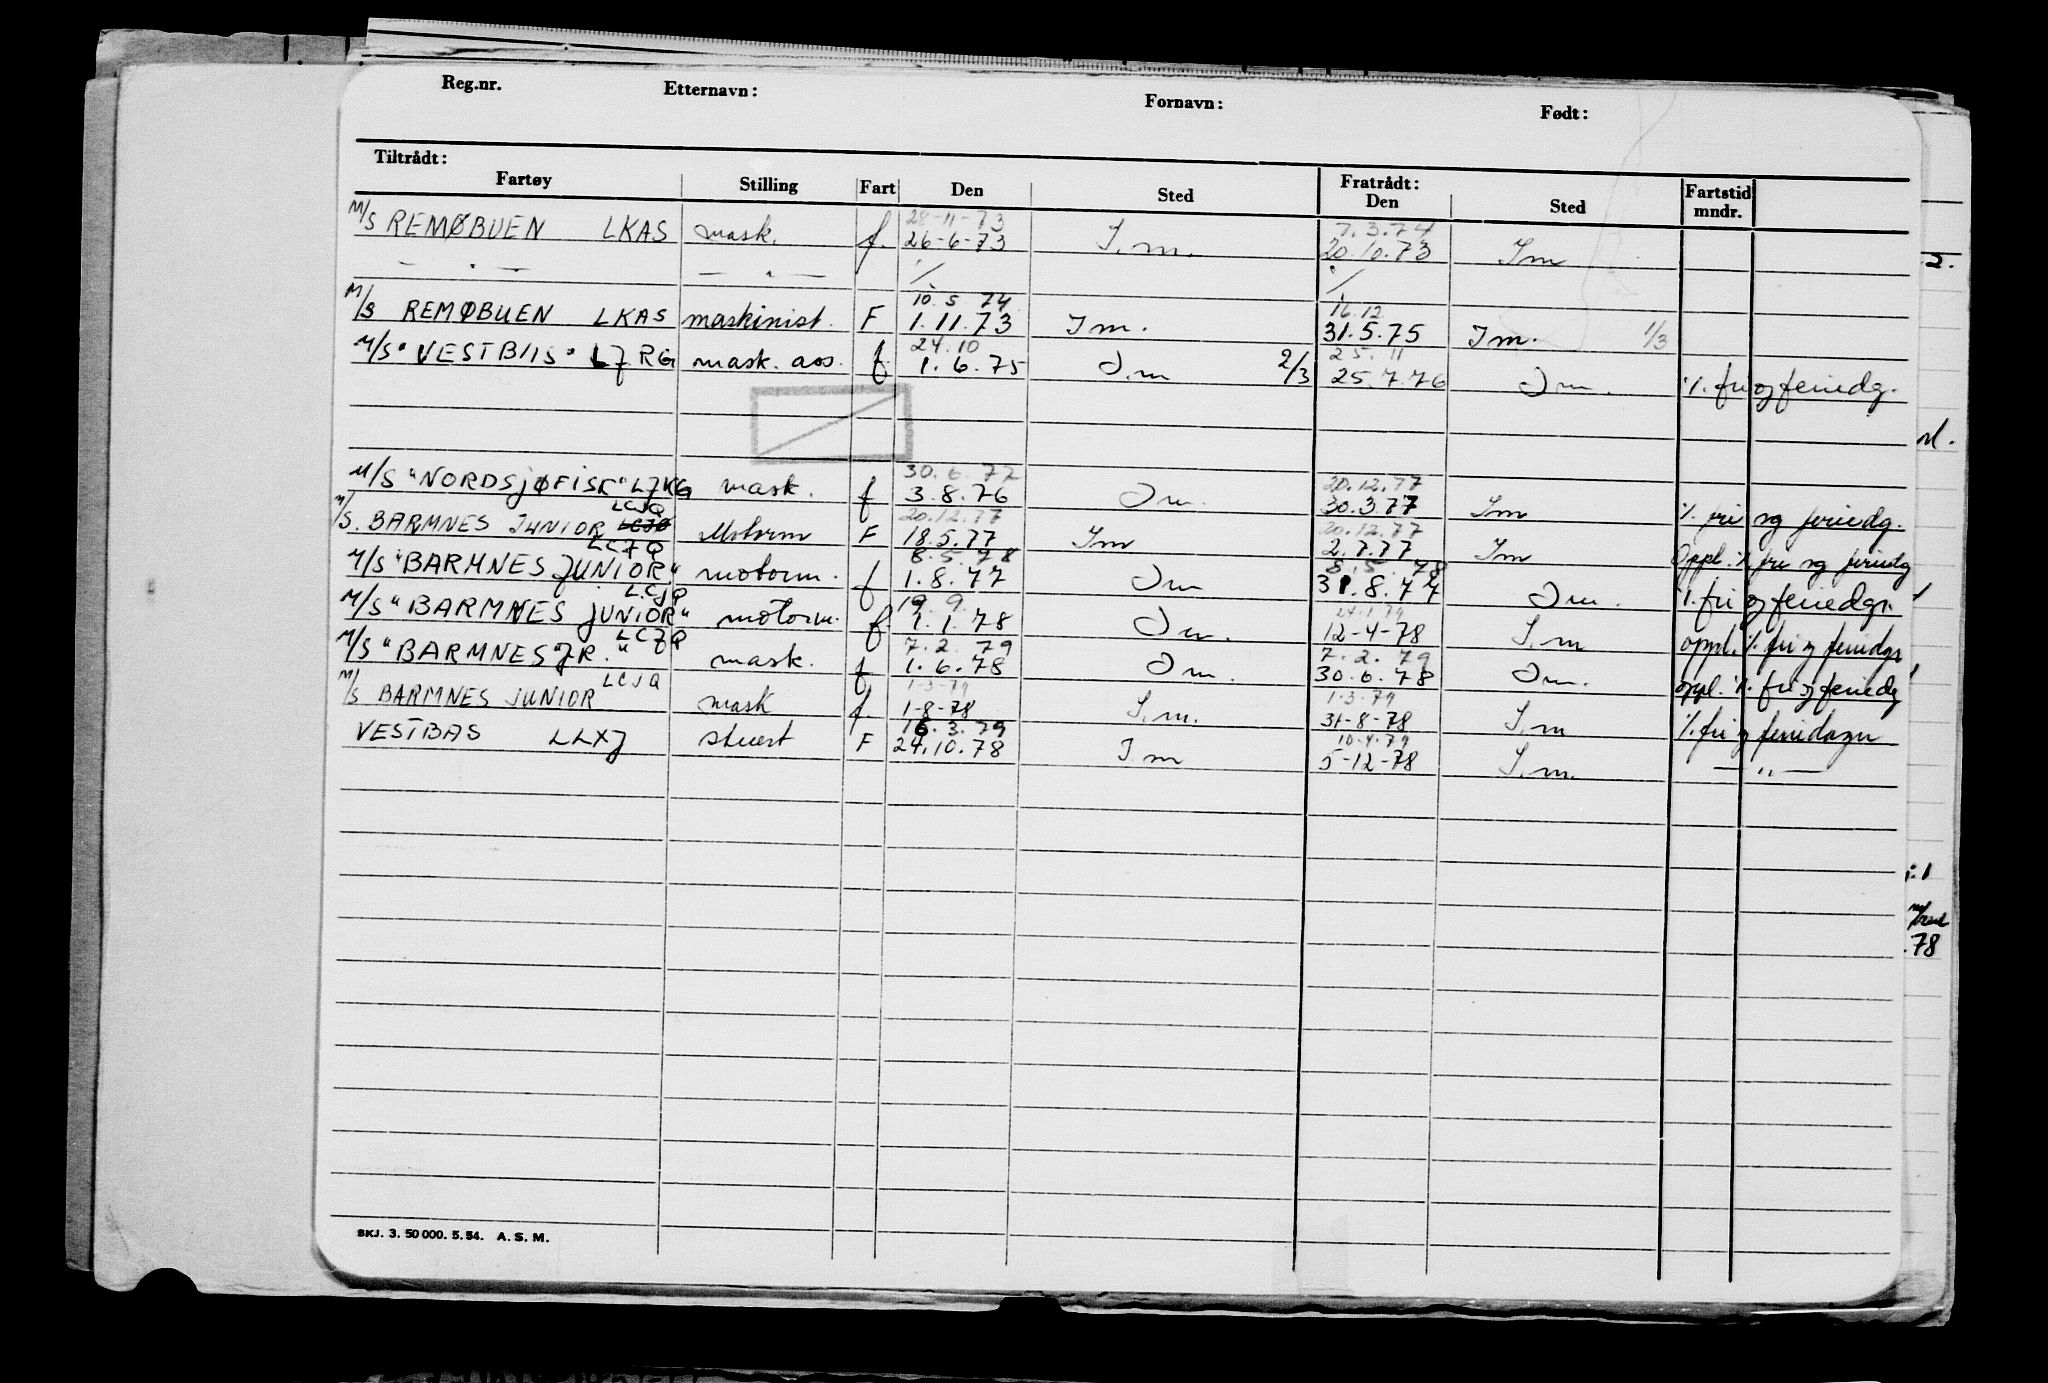 Reg.nr. Etternavn: Fornavn: Født:
Tiltrådt: Fratrådt:
Fartøy Stilling Fart Den Sted Den Sted Fartstid mndr.
28-11-73 7.3.74
M/S REMØBUEN LKAS mask. f. 26-6-73 I.m. 20.10.73 Im
— " — — " —
10.5.74 16.12
M/S REMØBUEN LKAS maskinist. F 1.11.73 Im. 31.5.75 Im. 1/3
24.10 25.11
M/S "VESTBIIS" LJRG mask. ass. f 1.6.75 Im 2/3 25.7.76 Im. %. fri og feriedg.
30.6.77 20.12.77
M/S "NORDSJØFISK" LJKG mask. f 3.8.76 Im. 30.3.77 Im %. fri og feriedg.
LCJQ 20.12.77 20.12.77
M/S. BARMNES JUNIOR Motorm F 18.5.77 Im 2.7.77 Im Oppl. %. fri og feriedg
LCJQ 8.5.78 8.5.78
M/S "BARMNES JUNIOR" motorm. f 1.8.77 Im 31.8.77 Im. %. fri og feriedgr.
LCJQ 19.9. 24.1.79
M/S "BARMNES JUNIOR" motorm. f 1.1.78 Im. 12-4-78 I.m oppl. %. fri og feriedgr
LCJQ 7.2.79 7.2.79
M/S "BARMNES JR." mask. f 1.6.78 Im. 30.6.78 Im. oppl. %. fri og feriedg
LCJQ 1-3-79 1.3.79
M/S BARMNES JUNIOR mask f. 1-8-78 I.m. 31-8-78 I.m %. fri og feriedager
16.3.79 10.4.79
VESTBAS LLXJ stuert F 24.10.78 Im 5-12-78 I.m. — " —
SKJ. 3. 50 000. 5. 54. A. S. M.
2.
78